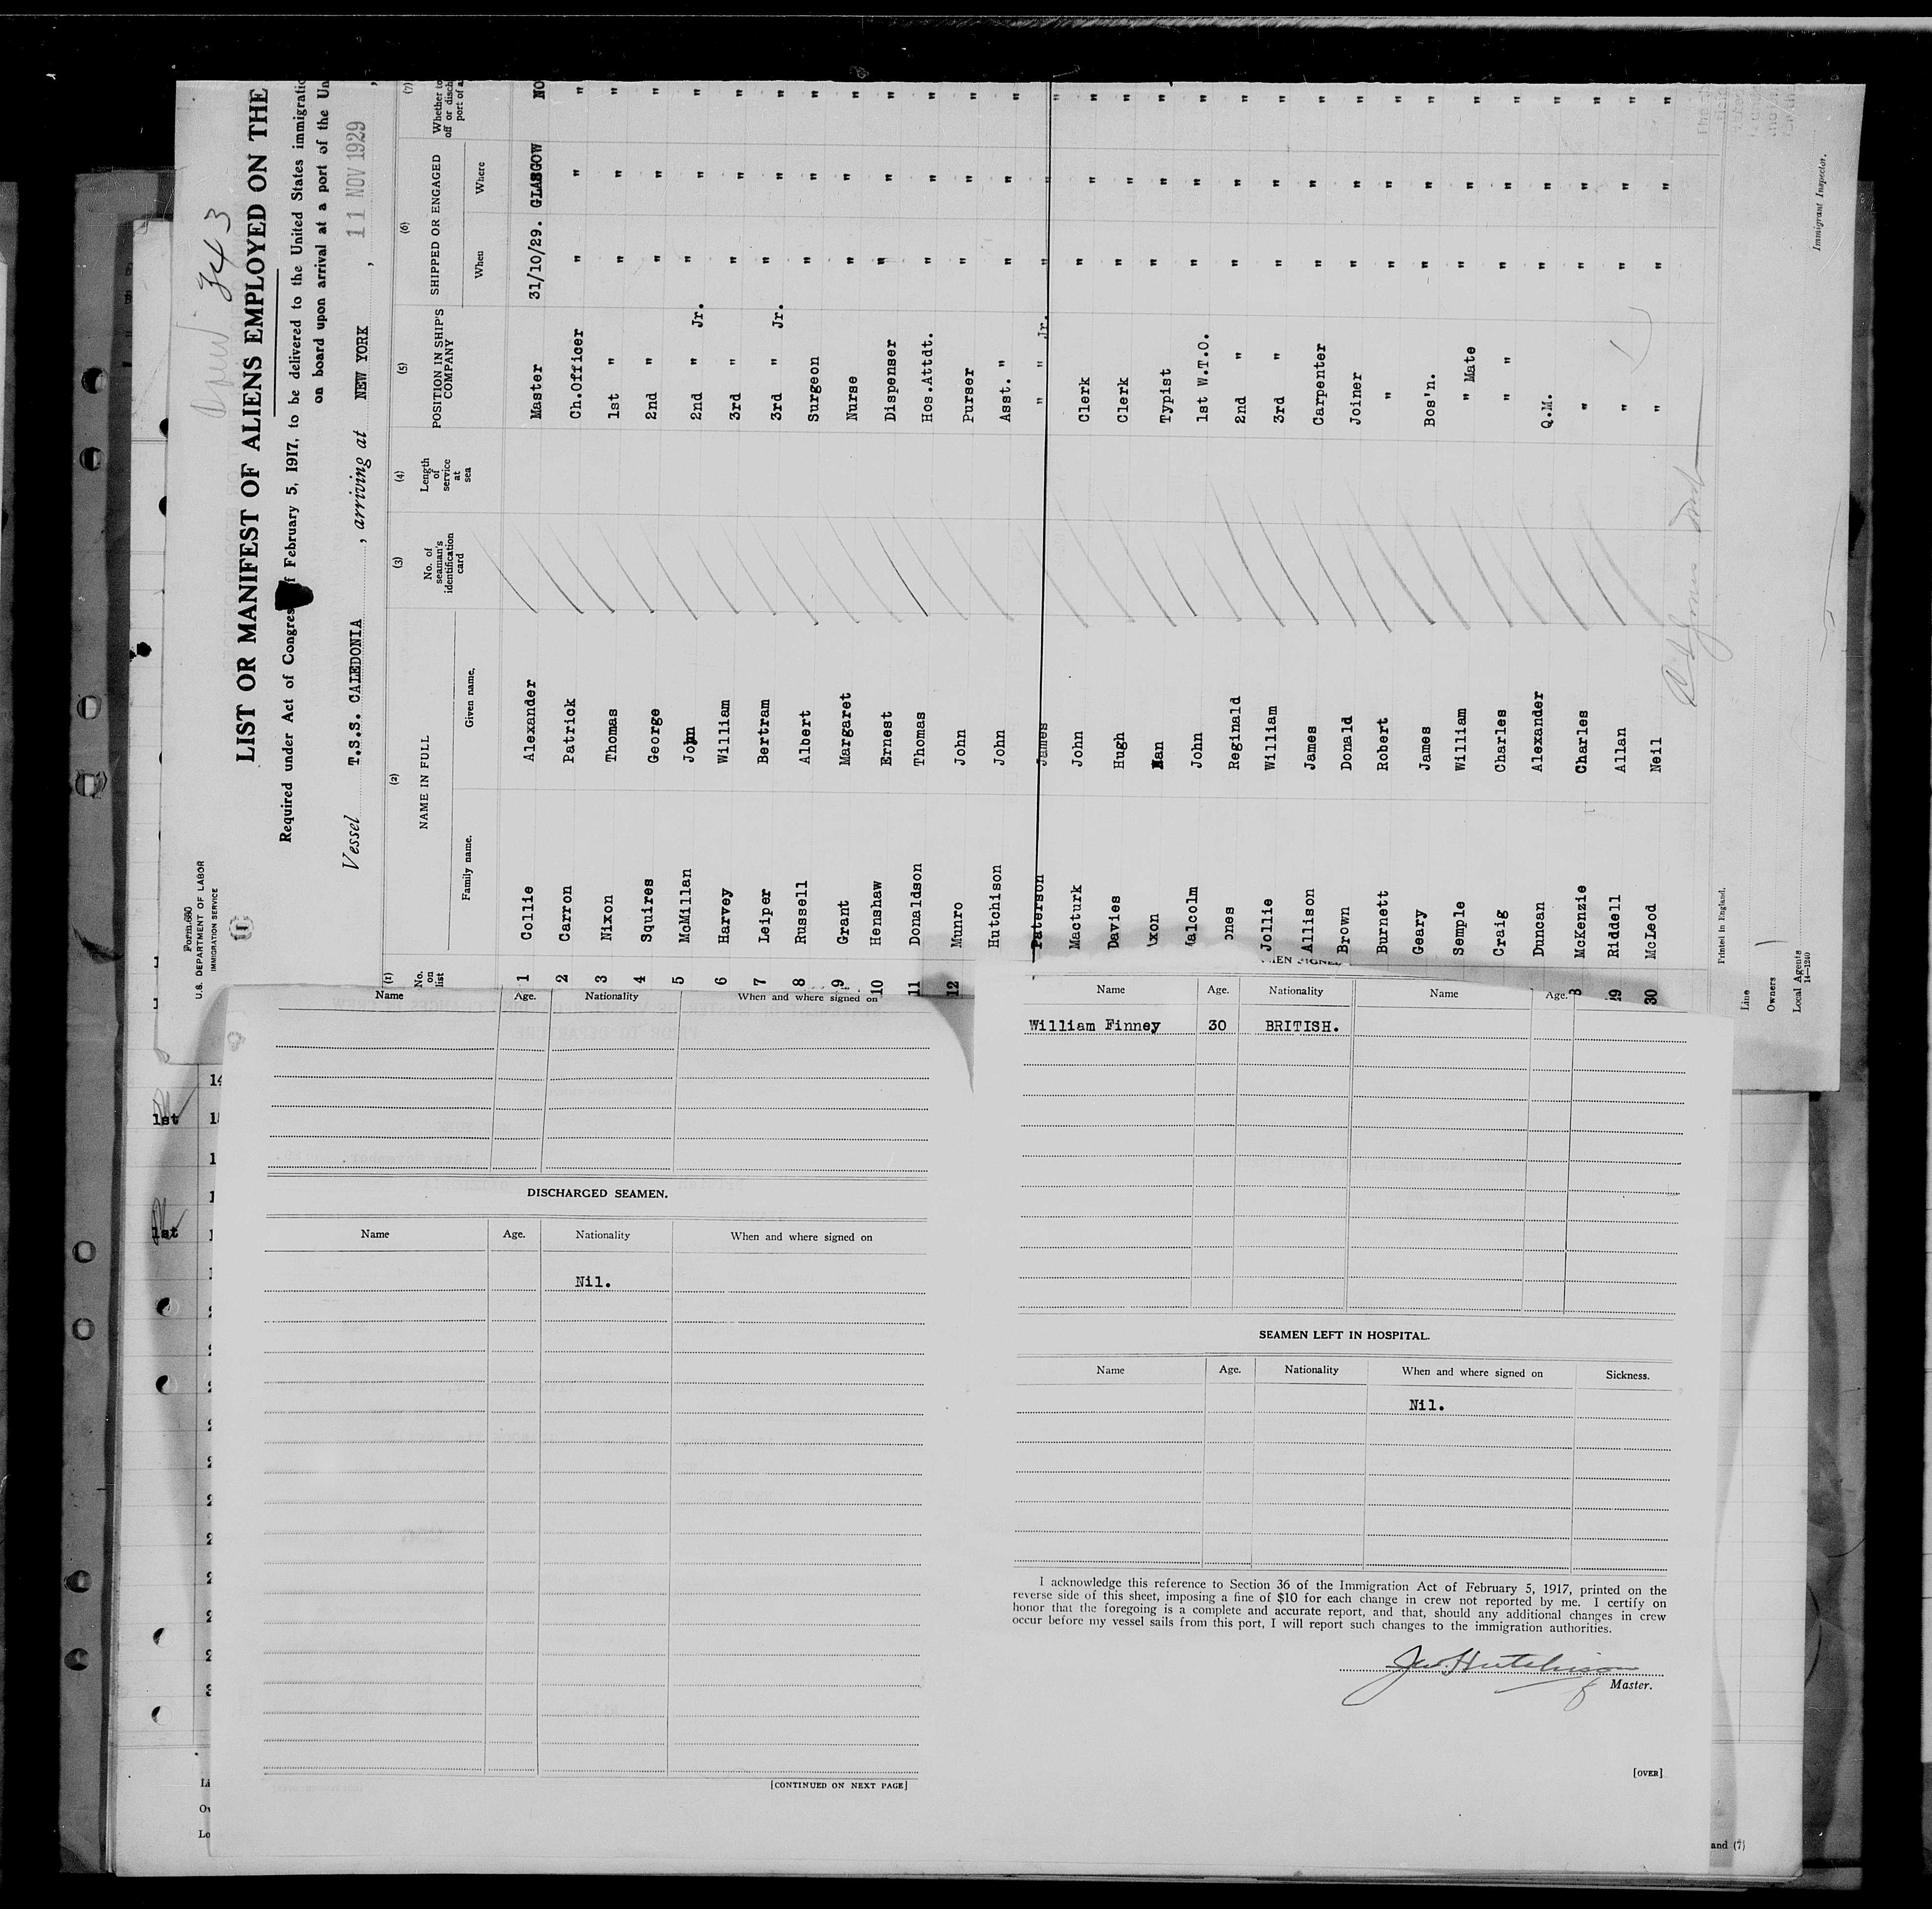 Form 680
U. S. DEPARTMENT OF LABOR
IMMIGRATION SERVICE
343
LIST OR MANIFEST OF ALIENS EMPLOYED ON THE
Required under Act of Congress February 5, 1917, to be delivered to the United States
on board upon arrival at a port of the
Vessel T.S.S. CALEDONIA, arriving at NEW YORK, 11 NOV 1929,
(1) (2) (3) (4) (5) (6) (7)
No. on list NAME IN FULL No. of seaman's identification card Length of service at sea POSITION IN SHIP'S COMPANY SHIPPED OR ENGAGED Whether to
off or
port of
Family name. Given name. When Where
1 Collie Alexander Master 31/10/29. GLASGOW NO
2 Carron Patrick Ch.Officer " " "
3 Nixon Thomas 1st " " " "
4 Squires George 2nd " " " "
5 McMillan John 2nd " Jr. " " "
6 Harvey William 3rd " " " "
7 Leiper Bertram 3rd " Jr. " " "
8 Russell Albert Surgeon " " "
9 Grant Margaret Nurse " " "
10 Henshaw Ernest Dispenser " " "
11 Donaldson Thomas Hos.Attdt. " " "
12 Munro John Purser " " "
Hutchison John Asst. " " " "
Paterson James " " Jr. " " "
Macturk John Clerk " " "
Davies Hugh Clerk " " "
Typist " " "
John 1st W.T.O. " " "
Reginald 2nd " " " "
Jollie William 3rd " " " "
Allison James Carpenter " " "
Brown Donald Joiner " " "
Burnett Robert " " " "
Geary James Bos'n. " " "
Semple William " Mate " " "
Craig Charles " " " " "
Duncan Alexander Q.M. " " "
McKenzie Charles " " " "
Riddell Allan " " " "
30 McLeod Neil " " " "
Line
Owners
Local Agents
14—1240
Printed in England.
Immigrant Inspector.
14
1st
1st
Name Age. Nationality When and where signed on
DISCHARGED SEAMEN.
Name Age. Nationality When and where signed on
Nil.
[CONTINUED ON NEXT PAGE]
Name Age. Nationality Name Age.
William Finney 30 BRITISH.
SEAMEN LEFT IN HOSPITAL.
Name Age. Nationality When and where signed on Sickness.
Nil.
I acknowledge this reference to Section 36 of the Immigration Act of February 5, 1917, printed on the
reverse side of this sheet, imposing a fine of $10 for each change in crew not reported by me. I certify on
honor that the foregoing is a complete and accurate report, and that, should any additional changes in crew
occur before my vessel sails from this port, I will report such changes to the immigration authorities.
Jno. Hutchison
Master.
[OVER]
and (7)